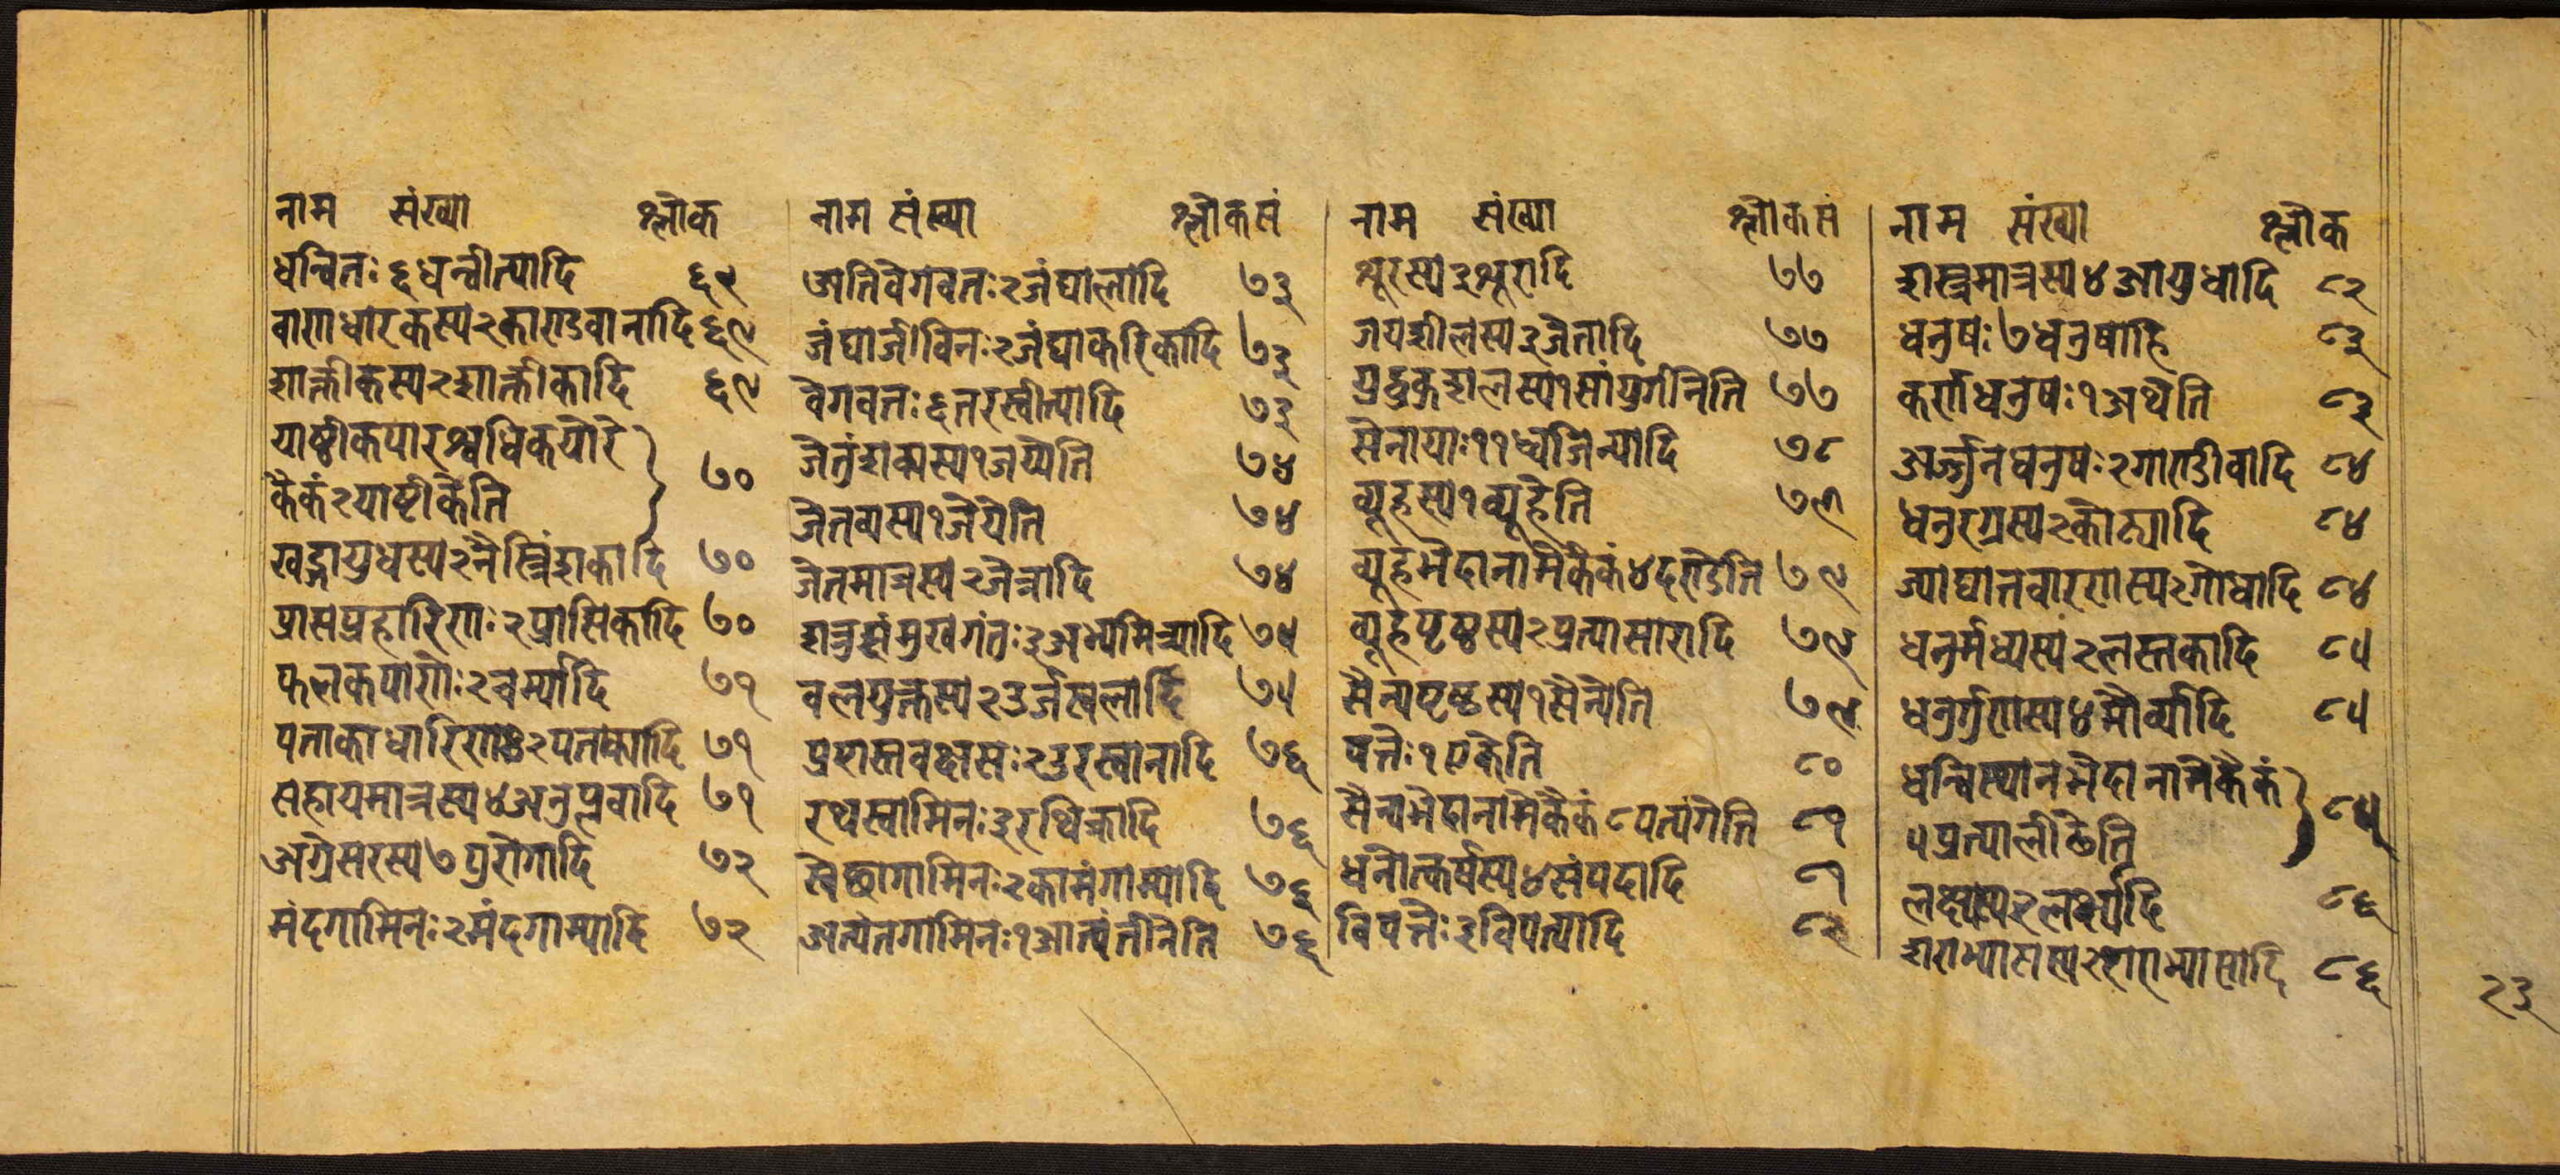 नाम संख्या श्लोक
धन्विनः ६ धन्वीत्यादि ६९
वाणधारकस्य २ काण्डवानादि ६९
शाक्तीकस्य २ शाक्तीकादि ६९
याष्टीकपारश्वधिकयोरे
कैकं २ याष्टीकेति ७०
खड्गायुधस्य २ नैस्त्रिंशकादि ७०
प्रासप्रहारिणः २ प्रासिकादि ७०
फलकपाणेः २ चर्म्यादि ७१
पताकाधारिणः २ पताकादि ७१
सहायमात्रस्य ४ अनुप्लवादि ७१
अग्रेसरस्य ७ पुरोगादि ७२
मंदगामिनः २ मंदगाम्यादि ७२
नाम संख्या श्लोकसं
अतिवेगवतः २ जंघालादि ७३
जंघाजीविनः २ जंघाकरिकादि ७३
वेगवतः ६ तरस्वीत्यादि ७३
जेतुंशक्यस्य १ जय्येति ७४
जेतव्यस्य १ जेयेति ७४
जेतमात्रस्य २ जेत्रादि ७४
शत्रुसंमुखगंतः ३ अभ्यमित्र्यादि ७५
वलयुक्तस्य २ उर्जस्वलादि ७५
प्रशस्तवक्षसः २ उरस्वानादि ७६
रथस्वामिनः ३ रथिकादि ७६
स्वेछागामिनः २ कामंगाम्यादि ७६
अत्यंतगामिनः १ आत्यंतीनेति ७६
नाम संख्या श्लोकसं
शूरस्य ३ शूरादि ७७
जयशीलस्य ३ जेतादि ७७
युद्धकुशलस्य १ सांयुगीनेति ७७
सेनायाः ११ ध्वजिन्यादि ७८
व्यूहस्य १ व्यूहेति ७९
व्यूहभेदानामेकैकं ४ दण्डेति ७९
व्यूहपृष्ठस्य २ प्रत्यासारादि ७९
सैन्यपृष्ठस्य १ सैन्येति ७९
पत्तेः १ एकेति ८०
सैन्यभेदानामेकैकं ८ पत्यंगेति ८१
धनोत्कर्षस्य ४ संपदादि ८१
विपत्तेः ३ विपत्यादि ८२
नाम संख्या श्लोक
शस्त्रमात्रस्य ४ आयुधादि ८२
धनुषः ७ धनुषाहि ८३
कर्णधनुषः १ अथेति ८३
अर्जुनधनुषः २ गाण्डीवादि ८४
धनुरग्रस्य २ कोट्यादि ८४
ज्याघातवारणस्य २ गोधादि ८४
धनुर्मध्यस्य २ लस्तकादि ८५
धनुर्गुणस्य ४ मौर्व्यादि ८५
धन्विस्थानभेदानामेकैकं
५ प्रत्यालीढेति ८५
लक्ष्यस्य २ लक्ष्यादि ८६
शराभ्यासस्य २ शराभ्यासादि ८६
२३